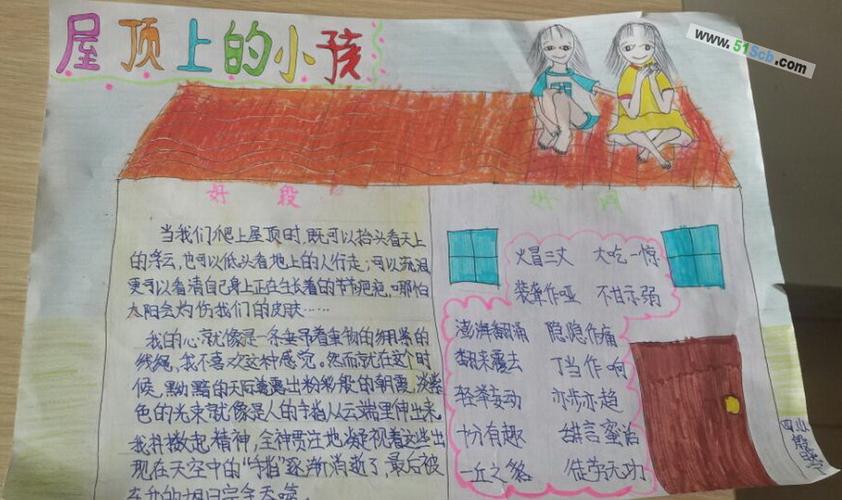 屋顶上的小孩
www.515cb.com
好段
当我们爬上屋顶时,既可以抬头看天上
的浮云,也可以低头看地上的人行走;可以流泪
更可以看清自己身上正在生长着的节节疤疤,哪怕
太阳会灼伤我们的皮肤……
我的心就像是一条垂吊着重物的绷紧的
线绳,我不喜欢这种感觉。然而就在这个时
候,黝黯的天际
透出粉彩般的朝霞,淡紫
色的光束就像是人的手指从云端里伸出来
我抖擞起精神,全神贯注地凝视着这些出
现在天空中的“手指”逐渐消逝了,最后被
好词
火冒三丈 大吃一惊
装聋作哑 不甘示弱
澎湃翻涌 隐隐作痛
翻来覆去 丁当作响
轻举妄动 亦步亦趋
十分有趣 甜言蜜语
一丘之貉 徒劳无功